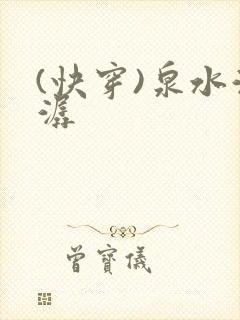 (快穿)泉水
潺
曾寶儀